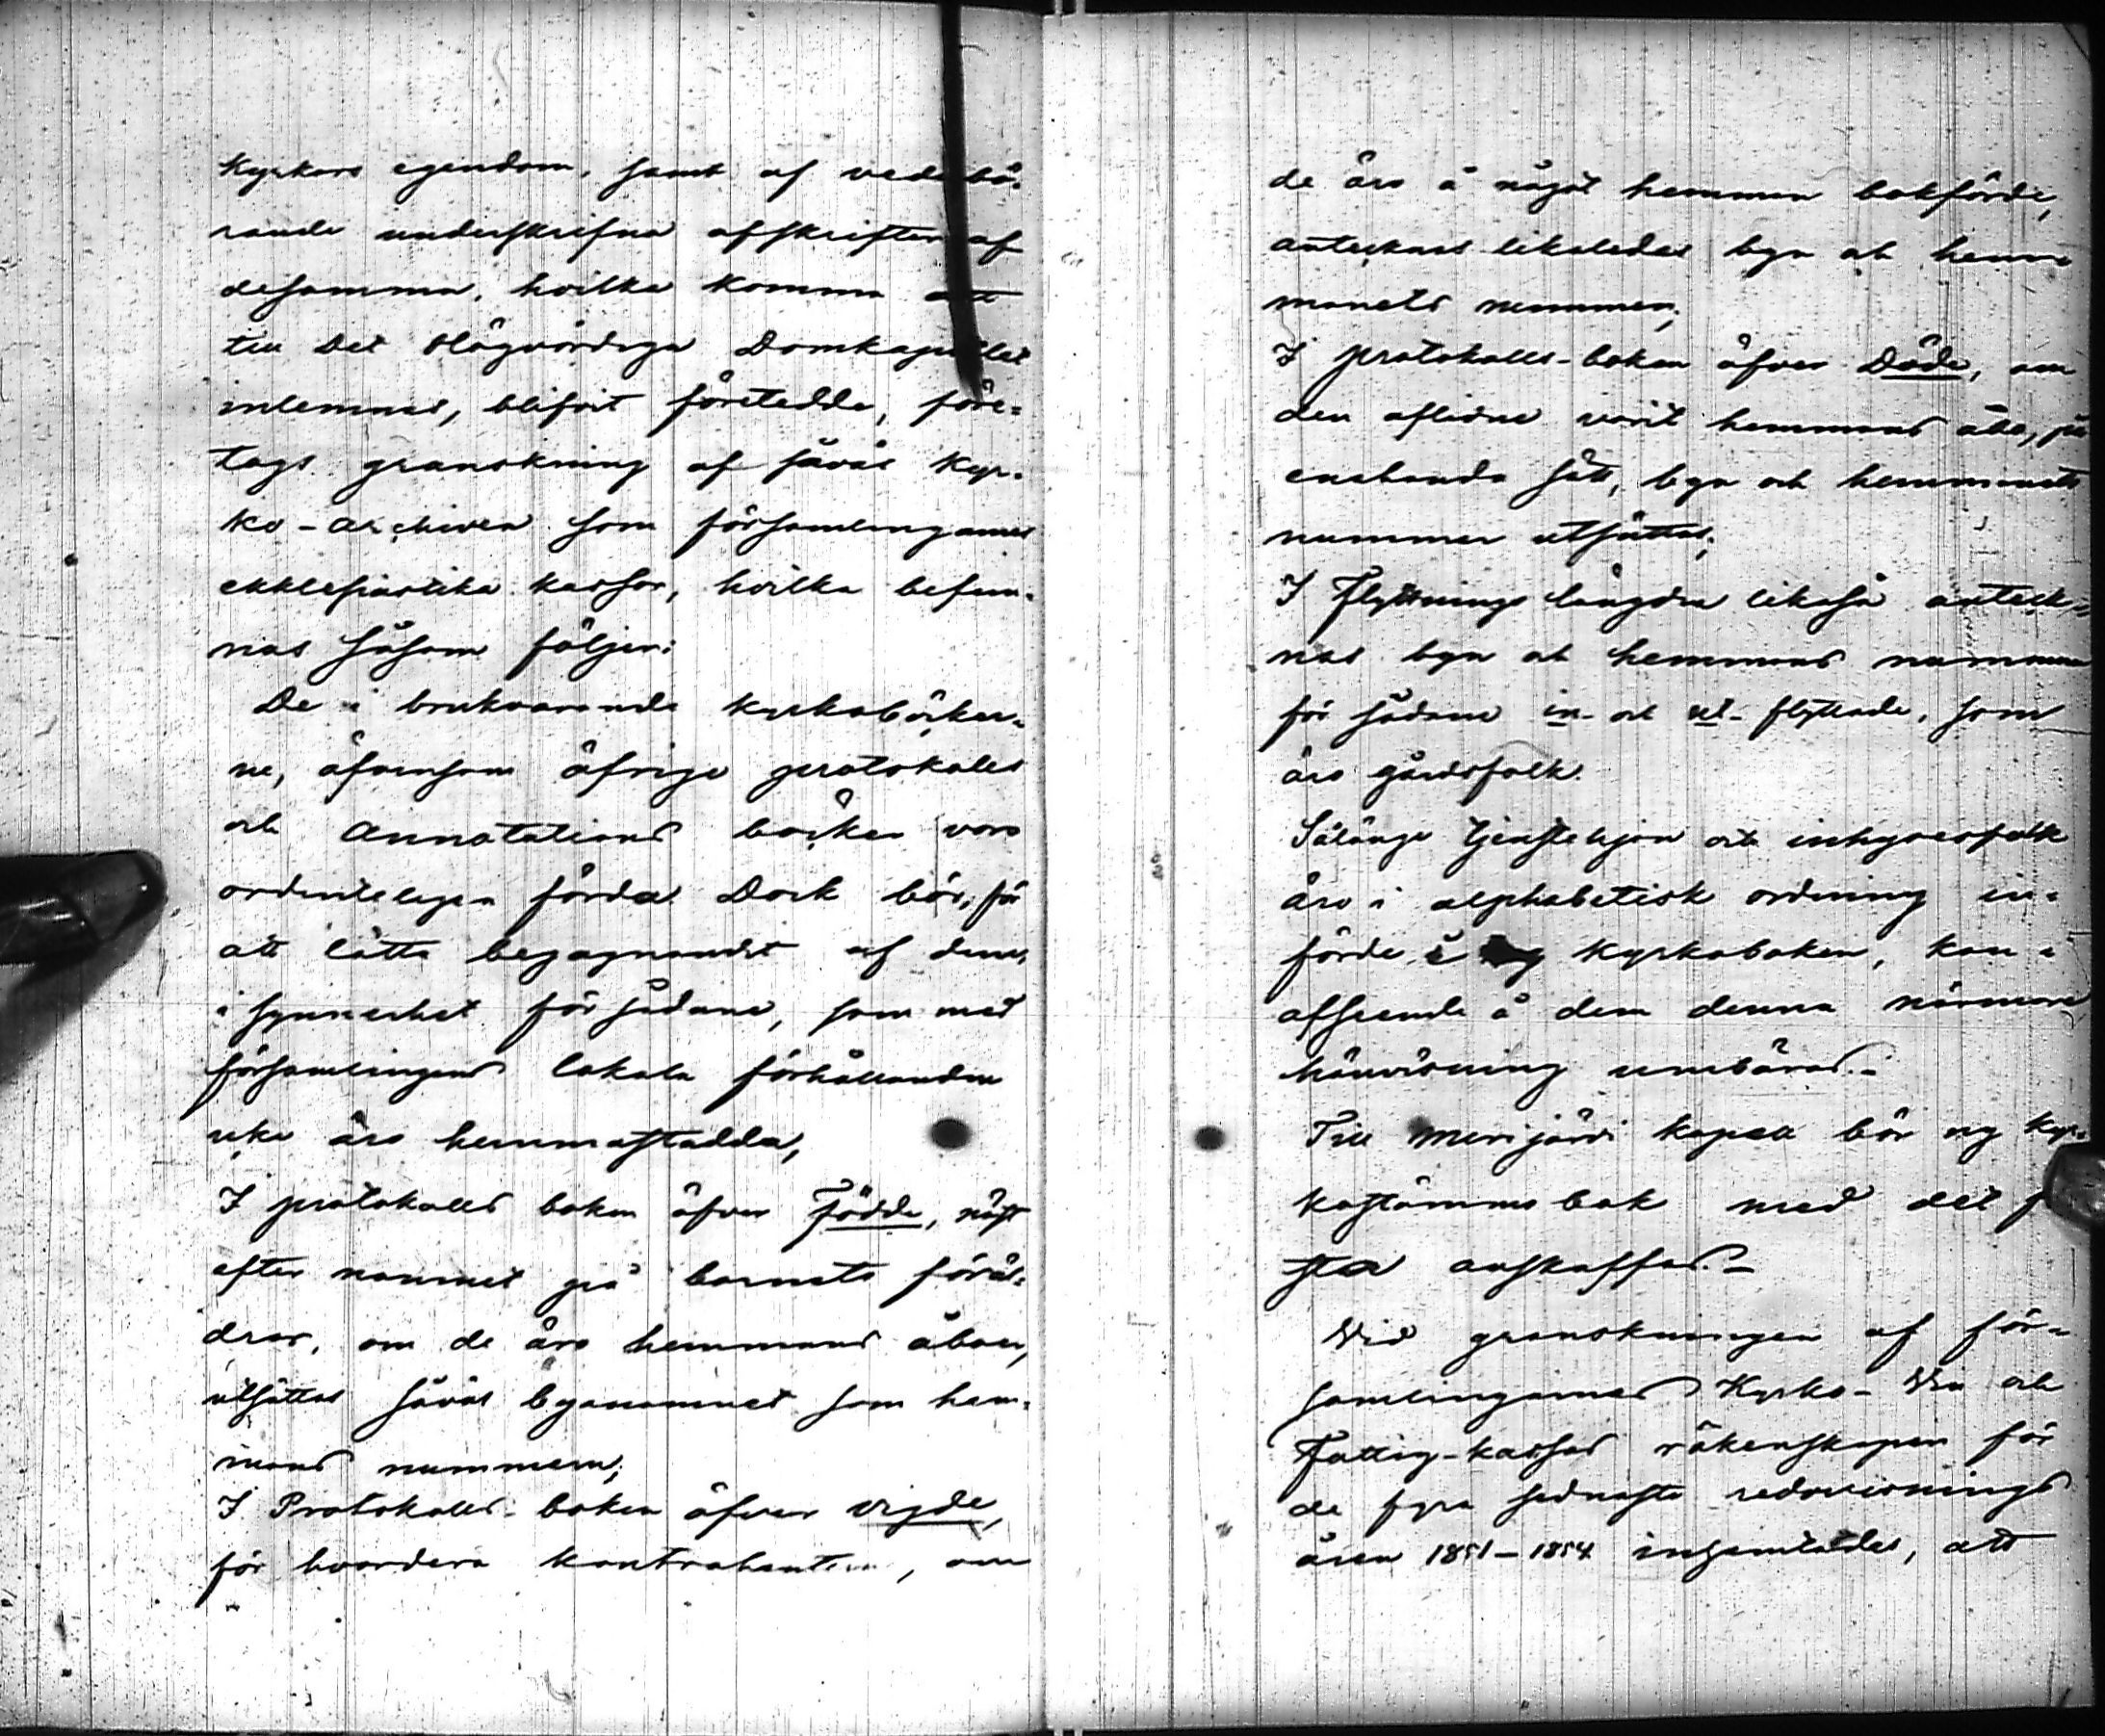 Kyrkors egendom, samt af vederbö-
rande underskrifna afskrifter af
desamma, hvilka komma att
till Det Högvördiga Domkapitlet
inlemnas, blifvit företedda, före-
togs granskning af såväl Kyr-
ko-archiven som församlingarnes
ekklesiastika kassor, hvilka befun-
nos såsom följer:
De i brukvarande kyrkoböcker-
ne, äfvensom öfriga protokolls
och annotations böcker voro
ordenteligen förda. Dock bör, för
att lätta begagnandet af dem,
i synnerhet för sådane, som med
församlingens lokala förhållanden
icke äro hemmastadda,
I protokolls boken öfver Födde, näst
efter namnet på barnets föräl-
drar, om de äro hemmans åboer,
utsättas såväl byanamnet som hem-
mans nummern;
I Protokolls-boken öfver vigde,
för hvardera kontrahenten, om
de äro å något hemman bokförde,
antecknas likaledes byn och hem-
manets nummer;
I protokolls-boken öfver Döde, om
den aflidne varit hemmans åbo, på
enahanda sätt, byn och hemmanets
nummer utsättas;
I Flyttnings längden likaså anteck-
nas byn och hemmans nummern
för sådane in- och ut-flyttade, som
äro gårdsfolk.
Sålänge tjenstehjon och inhysesfolk
äro i alphabetisk ordning in-
förde i kyrkoboken, kan i
afseende å dem denna närmare
hänvisning umbäras.-
Till Merijärvi kapell bör ny kyr-
kostämmo bok med det
sta anskaffas.-
Vid granskningen af för-
samlingarnes Kyrko- Vin och
Fattig-kassas räkenskaper för
de fyra sednaste redovisnings
åren 1851-1854 inhemtades, att